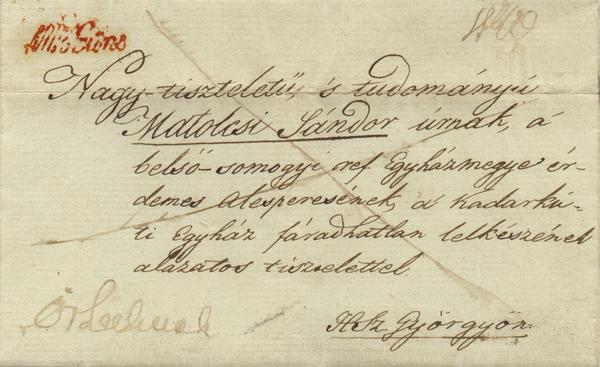 Nagy-tiszteletű, 's tudományú
Matolcsi Sándor úrnak, a
belső-somogyi ref Egyházmegye ér-
demes Alesperesének, a kadarkú-
ti Egyház fáradhatlan lelkészének
alázatos tisztelettel.
HSz Györgyön.